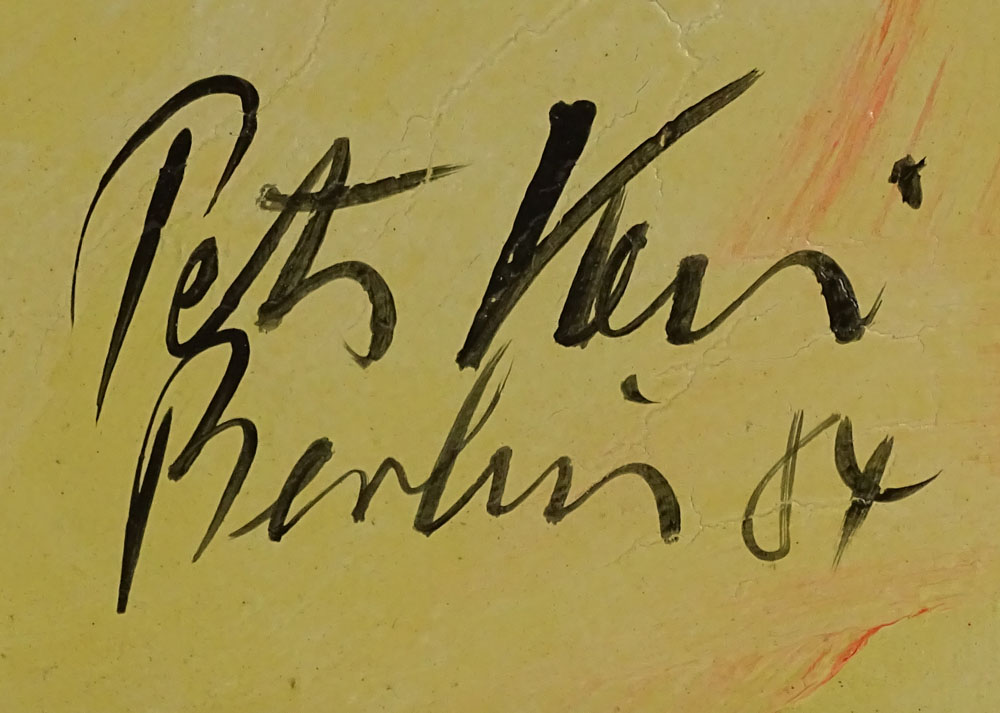 Peter Keil
Berlin 84